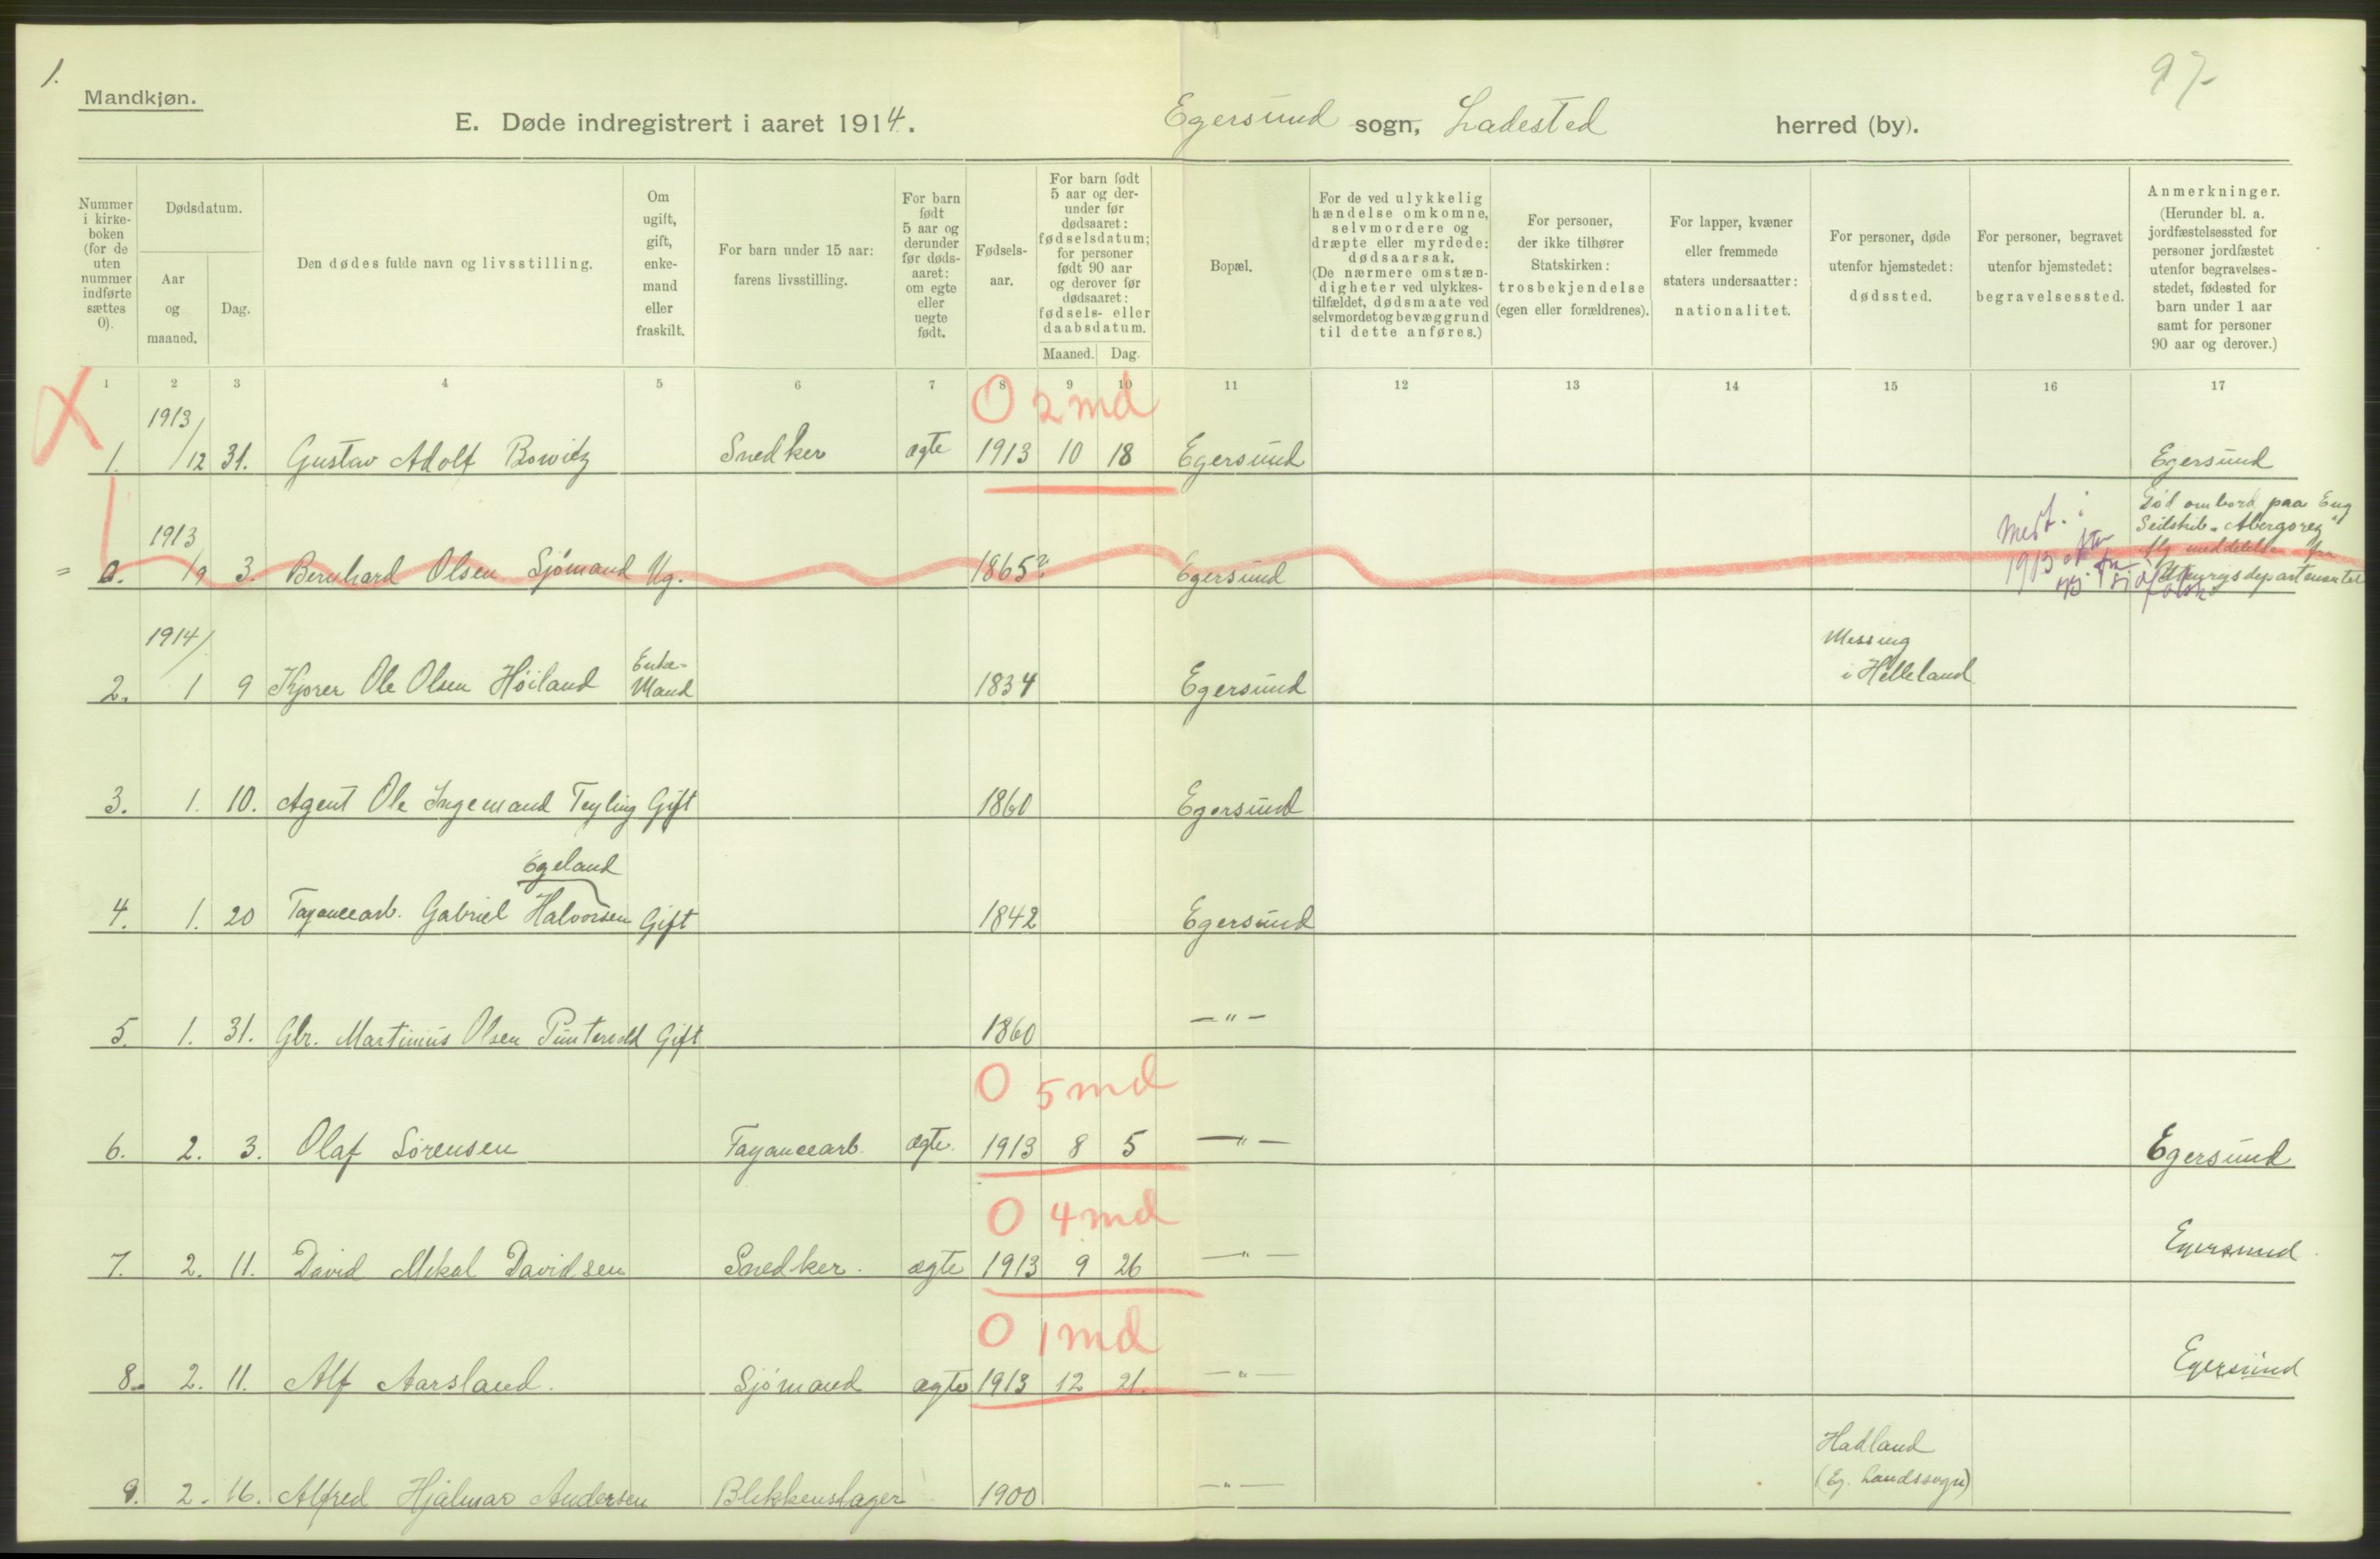 1.
97
Mandkjøn.
E. Døde indregistrert i aaret 1914. Egersund sogn, Ladested herred (by).
Nummer i kirke-boken (for de uten nummer indførte sættes 0).
Dødsdatum.
Aar og maaned.
Dag.
Den dødes fulde navn og livsstilling.
Om ugift, gift, enke-mand eller fraskilt.
For barn under 15 aar: farens livsstilling.
For barn født 5 aar og derunder før døds-aaret: om egte eller uegte født.
Fødsels-aar.
For barn født 5 aar og der-under før dødsaaret: fødselsdatum; for personer født 90 aar og derover før dødsaaret: fødsels- eller daabsdatum.
Maaned.
Dag.
Bopæl.
For de ved ulykkelig hændelse omkomne, selvmordere og dræpte eller myrdede: dødsaarsak. (De nærmere omstæn-digheter ved ulykkes-tilfældet, dødsmaate ved selvmordet og bevæggrund til dette anføres.)
For personer, der ikke tilhører Statskirken: trosbekjendelse (egen eller forældrenes).
For lapper, kvæner eller fremmede staters undersaatter: nationalitet.
For personer, døde utenfor hjemstedet: dødssted.
For personer, begravet utenfor hjemstedet: begravelsessted.
Anmerkninger. (Herunder bl. a. jordfæstelsessted for personer jordfæstet utenfor begravelses-stedet, fødested for barn under 1 aar samt for personer 90 aar og derover.)
1 2 3 4 5 6 7 8 9 10 11 12 13 14 15 16 17
0 2 md
1913/
1. /12 31. Gustav Adolf Bowitz Snedker ægte 1913 10 18 Egersund Egersund
Død ombord paa Eng
Seilskib "Abergorey"
1913
= 0. /9 3. Bernhard Olsen Sjømand Ug. 1865? Egersund
Medt. i
1913
iflg meddelelse fra
Utenrigsdepartementet
1914/
2. 1 9 Kjører Ole Olsen Høiland Enke-Mand 1834 Egersund Messing i Helleland
3. 1. 10. Agent Ole Ingemand Teyling Gift 1860 Egersund
Egeland
4. 1. 20 Fayancearb. Gabriel Halvorsen Gift 1842 Egersund
5. 1. 31. Gbr. Martinius Olsen Puntervold Gift 1860 — " —
0 5 md
6. 2. 3. Olaf Sørensen Fayancearb. ægte. 1913 8 5 — " — Egersund
0 4 md
7. 2. 11. David Mikal Davidsen Snedker. ægte 1913 9 26 — " — Egersund
0 1 md
8. 2. 11. Alf Aarsland. Sjømand ægte 1913 12 21. — " — Egersund
Hadland
9. 2. 16. Alfred Hjalmar Andersen Blikkenslager 1900 — " — (Eg. Landssogn)